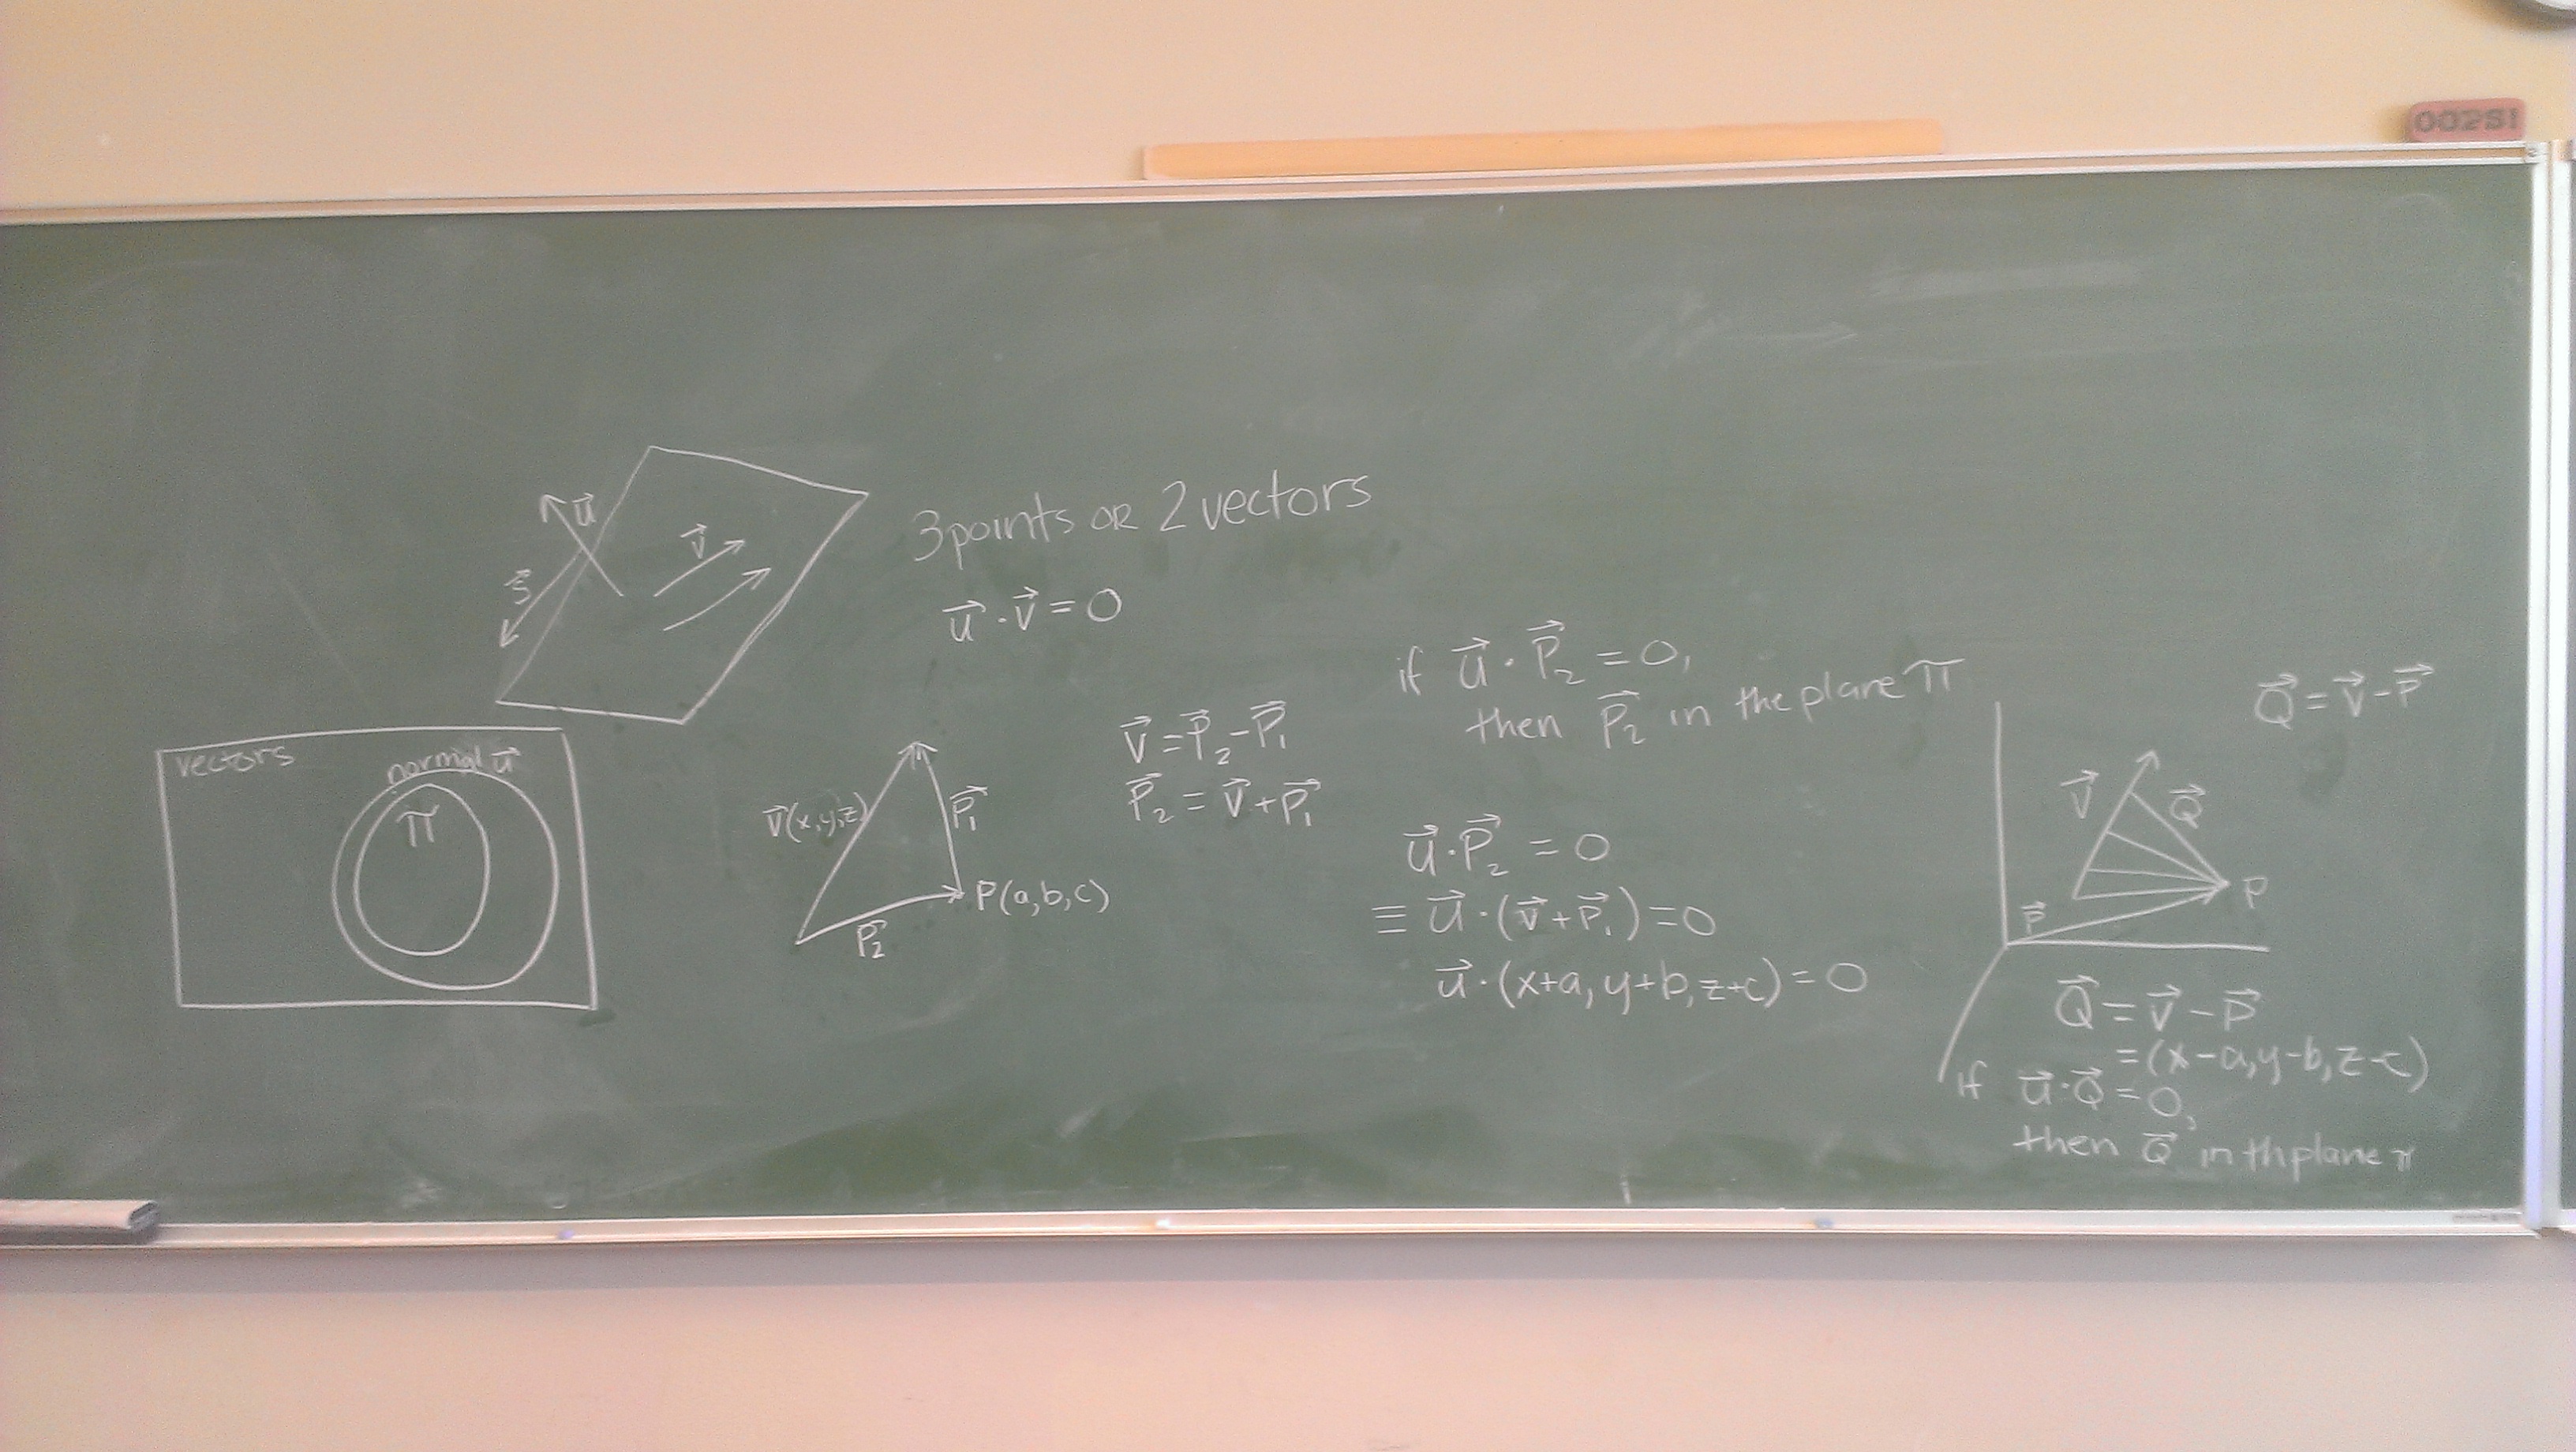 OOPS!
u⃗
v⃗
s⃗
3 points OR 2 vectors
u⃗ · v⃗ = 0
vectors
normal u⃗
π
v⃗(x,y,z)
P⃗₁
P(a,b,c)
P⃗₂
v⃗ = P⃗₂ - P⃗₁
P⃗₂ = v⃗ + P⃗₁
if u⃗ · P⃗₂ = 0,
then P⃗₂ in the plane π
u⃗ · P⃗₂ = 0
≡ u⃗ · (v⃗ + P⃗₁) = 0
u⃗ · (x+a, y+b, z+c) = 0
Q⃗ = v⃗ - P⃗
v⃗
Q⃗
P
P⃗
Q⃗ = v⃗ - P⃗
= (x-a, y-b, z-c)
if u⃗ · Q⃗ = 0,
then Q⃗ in th plane π